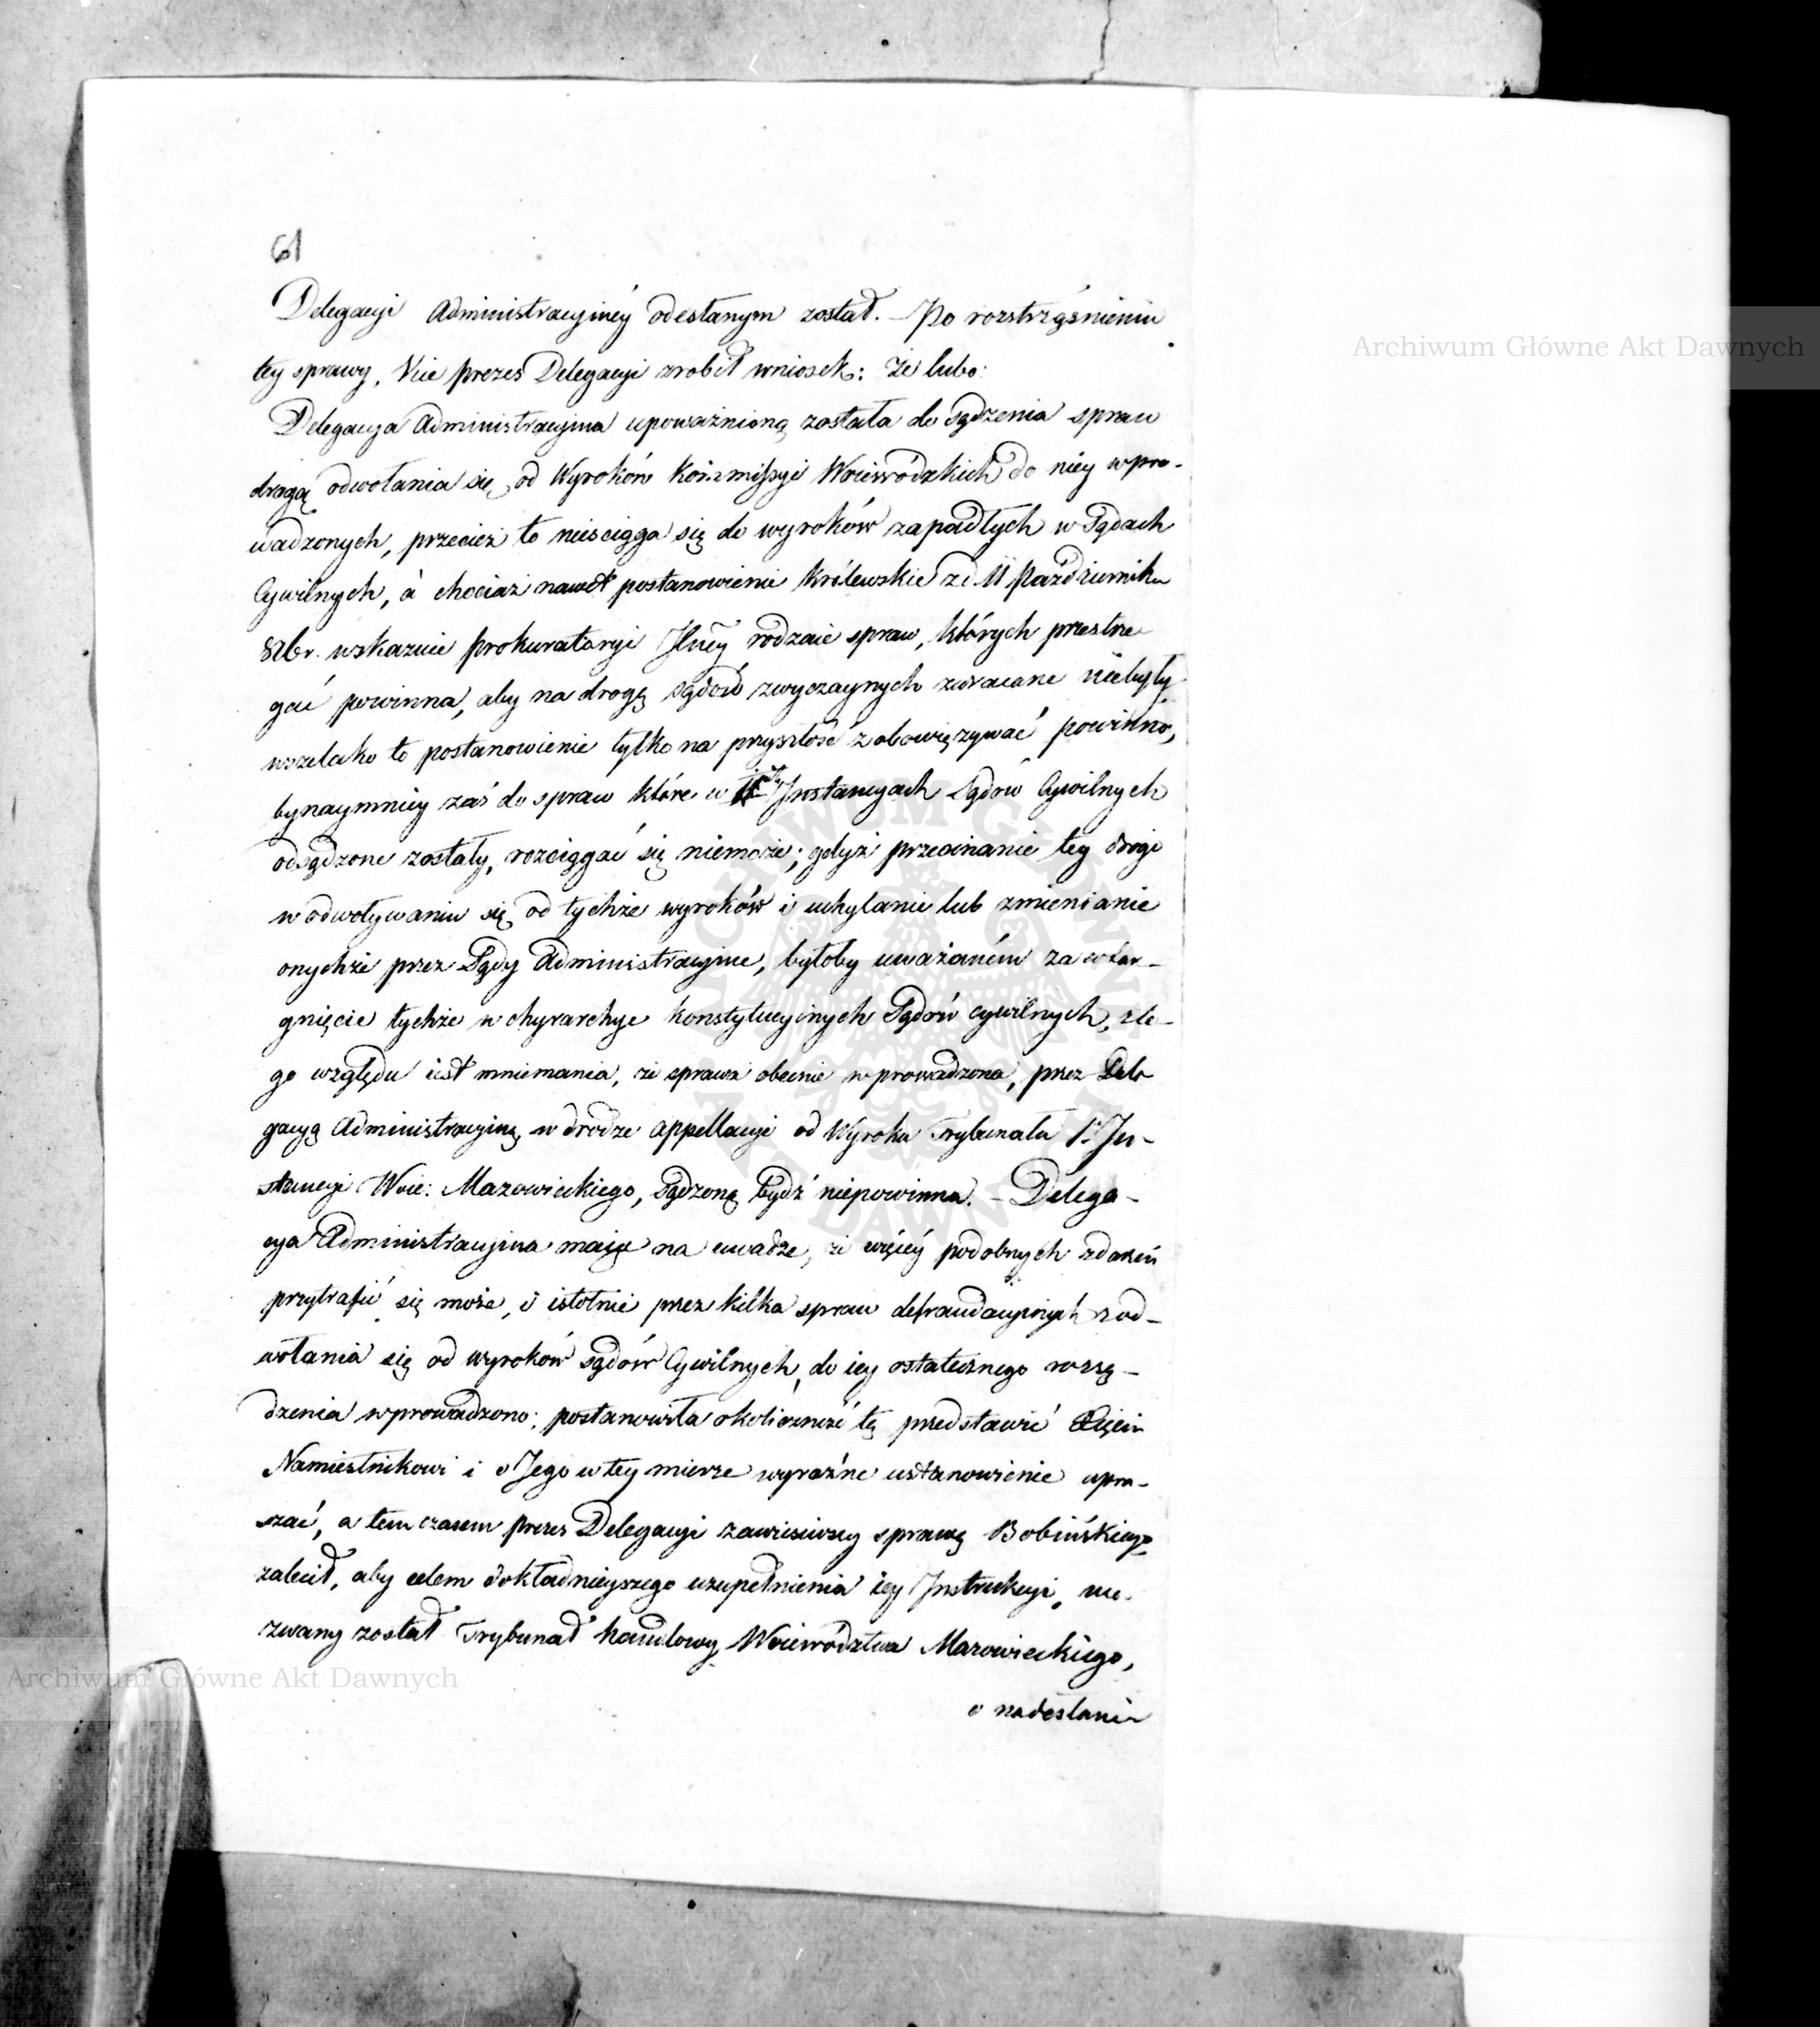 61
Delegacyi Administracyinéy odesłanym został. – Po rozstrząśnieniu
tey sprawy, Vice prezes Delegacyi zrobił wniosek: że lubo
Delegacya Administracyina upoważnioną została do Sądzenia spraw
drogą odwołania się od Wyroków Kommissyi Woiewódzkich do niey wpro-
wadzonych, przecież to nieściąga się do wyroków zapadłych w Sądach
Cywilnych, á chociaż nawet postanowienie Królewskie z d 11 Października
r. wskazuie Prokuratoryi rodzaie spraw, których przestrze-
gać powinna, aby na drogę sądów zwyczaynych zwracane niebyły
wszelako to postanowienie tylko na przyszłość zobowięzywać powinno,
bynaymniey zaś do spraw które w Instancyach Sądów Cywilnych
odsądzone zostały, rozciągać się niemoże; gdyż przecinanie tey drogi
w odwoływaniu się od tychże wyroków i uchylanie lub zmienianie
onychże przez Sądy Administracyine, byłoby uważaném za wtar-
gnięcie tychże w chyrarchye konstytucyinych Sądów cywilnych, z te-
go względu iest mniemania, że sprawa obecnie wprowadzona, przez Dele
gacyą Administracyiną w drodze appellacyi od Wyroku Trybunału 1. In-
stancyi Woie: Mazowieckiego, Sądzoną bydź niepowinna. – Delega-
cya Administracyina maiąc na uwadze, że więcéy podobnych zdarzeń
przytrafić się może, i istotnie przez kilka spraw defraudacyinych z od-
wołania się od wyroków sądów Cywilnych, do iey ostatecznego rozsą-
dzenia wprowadzono; postanowiła okoliczność tę przedstawić Xięciu
Namiestnikowi i o Jego w tey mierze wyraźne ustanowienie upra-
szać, a tem czasem Prezes Delegacyi zawiesiwszy sprawę Bobińskiego
zalecił, aby celem dokładnieyszego uzupełnienia iey Instrukcyi, we-
zwany został Trybunał handlowy Woiewództwa Mazowieckiego,
o nadesłanie
Archiwum Główne Akt Dawnych
Archiwum Główne Akt Dawnych
ARCHIWUM GŁÓWNE AKT DAWNYCH